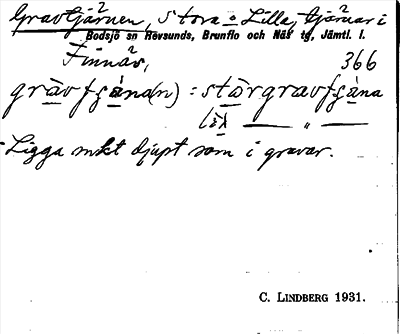 Gravtjärnen, Stora o Lilla, tjärnar i
Bodsjö sn Revsunds, Brunflo och Näs tg, Jämtl. l.
Finnäs, 366
gràvfçàna(n) : stórgravfçàna
lìsl — „ —
Ligga mkt djupt som i gravar.
C. LINDBERG 1931.